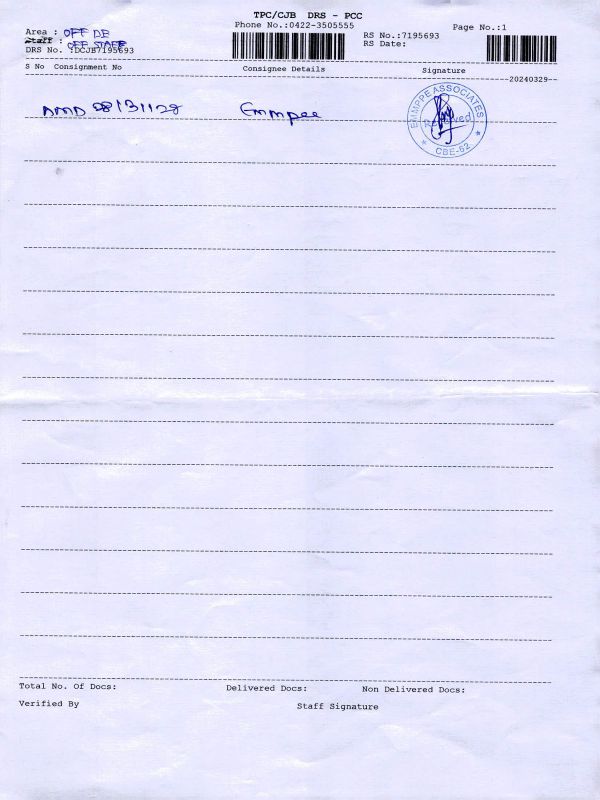 TPC/CJB DRS - PCC
Phone No.:0422-3505555
Page No.:1
Area : OFF DB
Staff : OFF STAFF
RS No.:7195693
DRS No. :DCJB7195693
RS Date:
S No Consignment No Consignee Details Signature
20240329
AMD 28131128 Emmpee
EMMPPE ASSOCIATES
Received
CBE-62
Total No. Of Docs: Delivered Docs: Non Delivered Docs:
Verified By Staff Signature